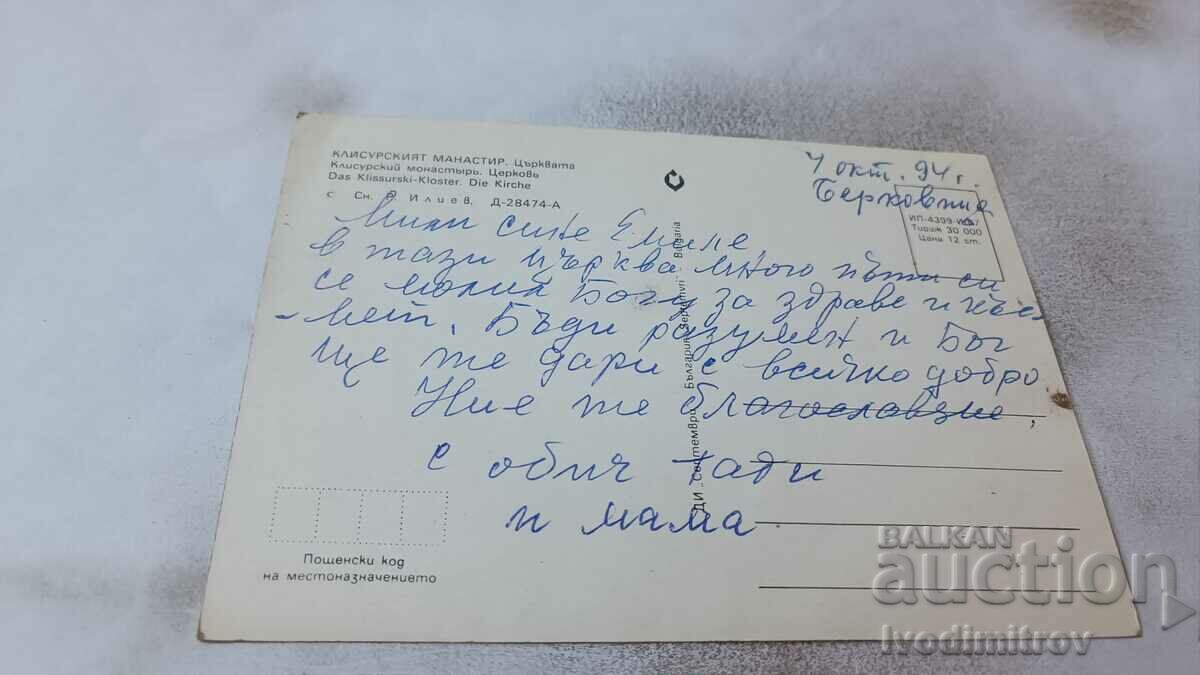 КЛИСУРСКИЯТ МАНАСТИР. Църквата
Клисурский монастырь. Церковь
Das Klissurski-Kloster. Die Kirche
с Сн. Илиев, Д-28474-А
окт. 94 г.
Берковица
ИП-4399-И
Тираж 30 000
Цена 12 ст.
Мили сине Емиле
в тази църква много пъти си
се молил Богу за здраве и къс
мет. Бъди разумен и Бог
ще те дари с всичко добро
Ние те благославяме,
с обич тати
и мама
ДИ „Септември“ България „Septemvri“ Bulgaria
Пощенски код
на местоназначението
BALKAN
auction
Ivodimitrov